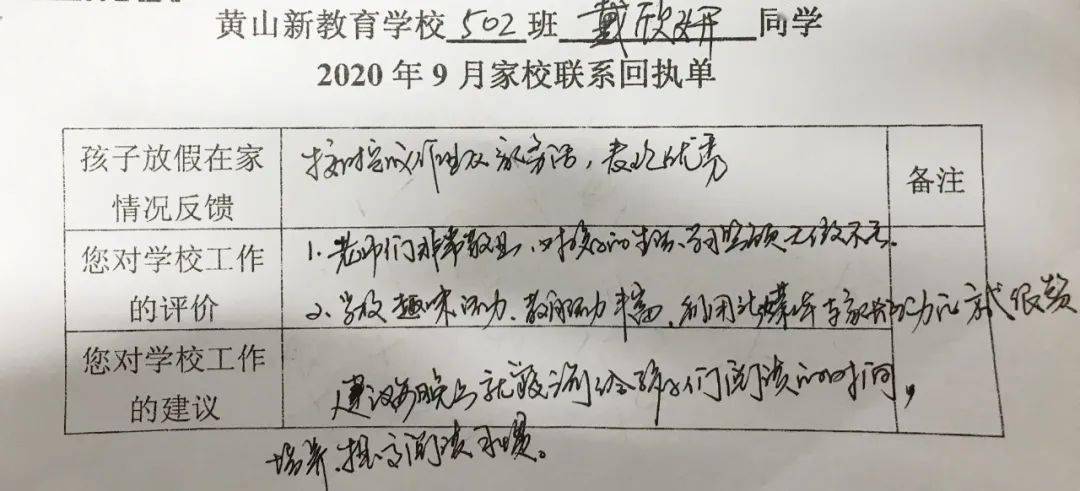 黄山新教育学校 502 班 戴欣妍 同学
2020年9月家校联系回执单
孩子放假在家
情况反馈
按时完成作业及家务活，表现优秀
备注
您对学校工作
的评价
1.老师们非常敬业，对孩子的生活、学习照顾无微不至.
2.学校趣味活动、教研活动丰富，利用社媒 与家长互动 方式很赞
您对学校工作
的建议
建议每晚上就寝前给孩子们阅读的时间，
培养、提高阅读习惯。